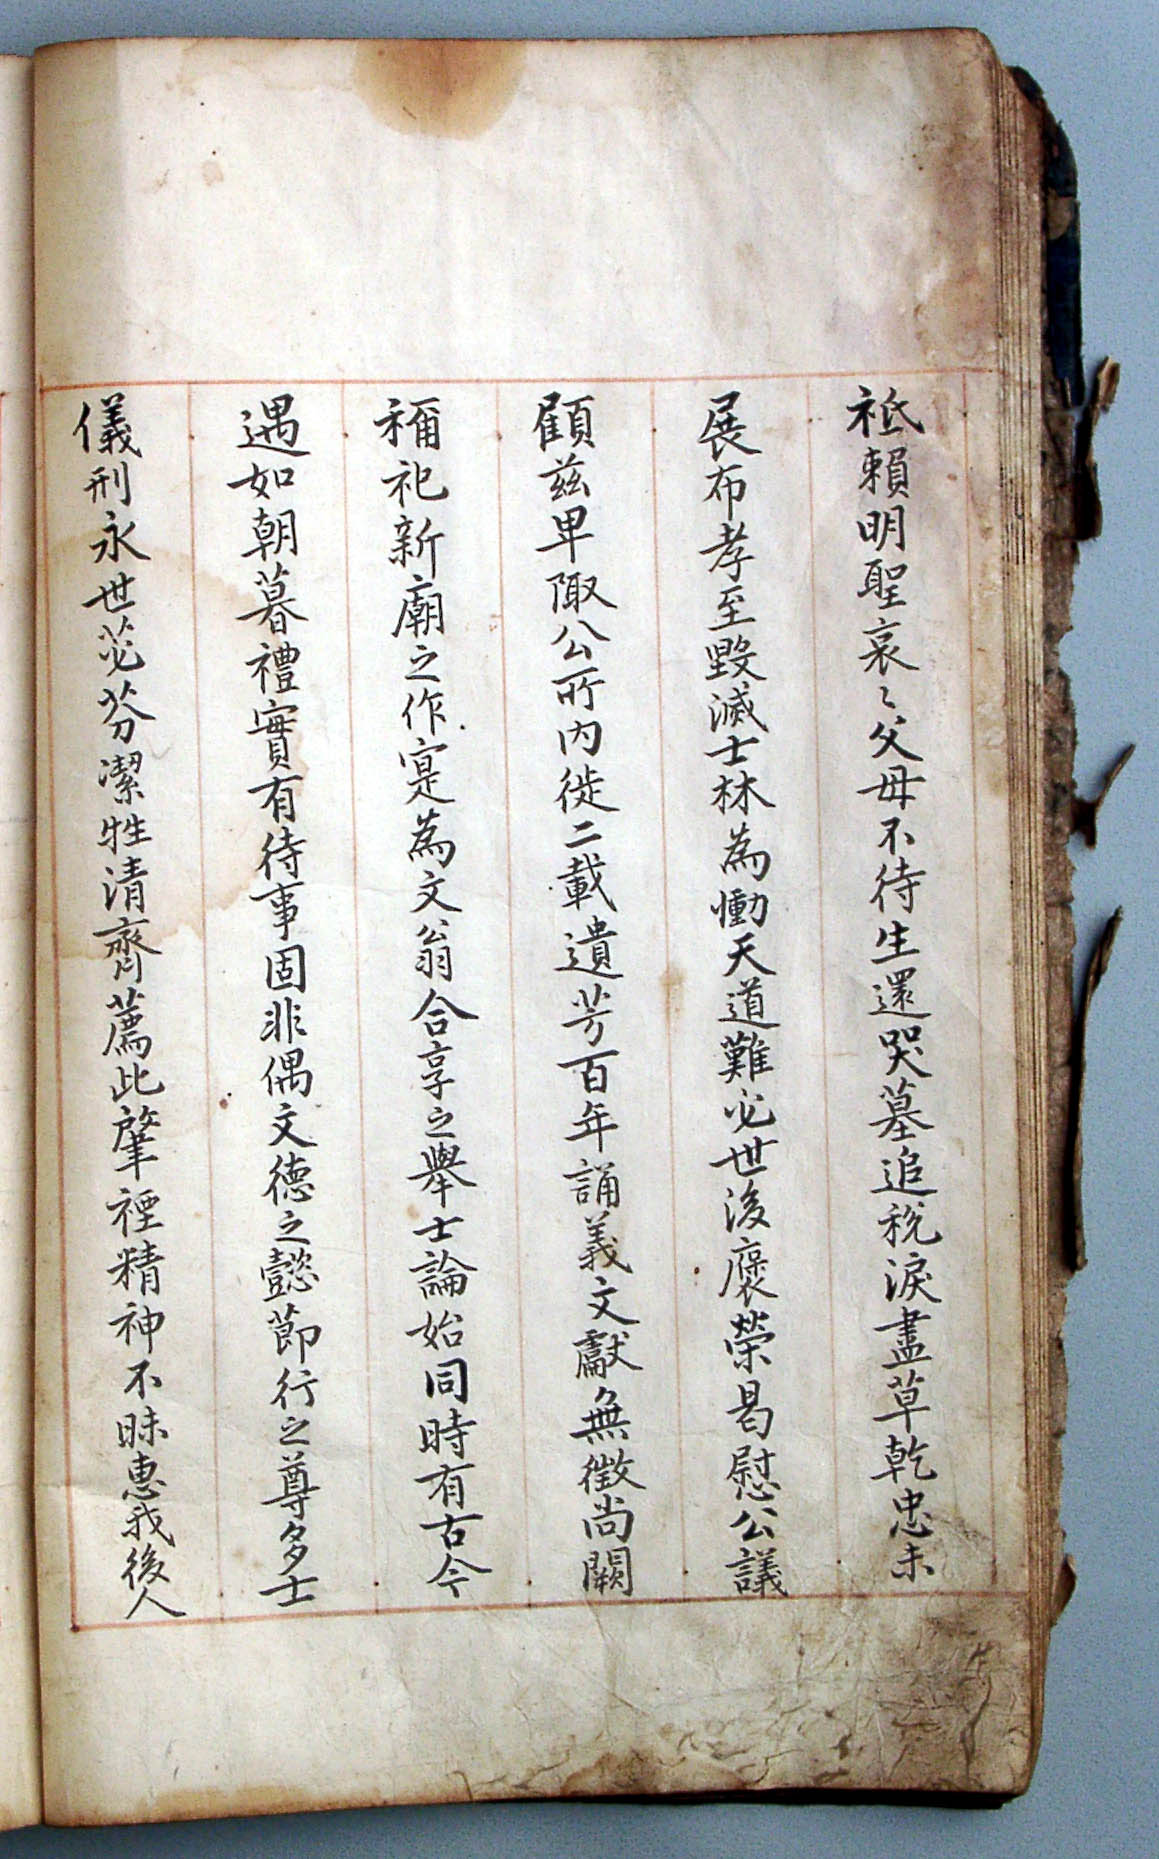 祗賴明聖哀〻父母不待生還哭墓追稅淚盡草乾忠未
展布孝至毀滅士林為慟天道難必世後褒榮曷慰公議
顧茲卑陬公所內徙二載遺芳百年誦義文獻無徵尚闕
禰祀新廟之作寔為文翁合享之擧士論始同時有古今
遇如朝暮禮實有待事固非偶文德之懿節行之尊多士
儀刑永世苾芬潔牲清齊薦此肇禋精神不昧惠我後人